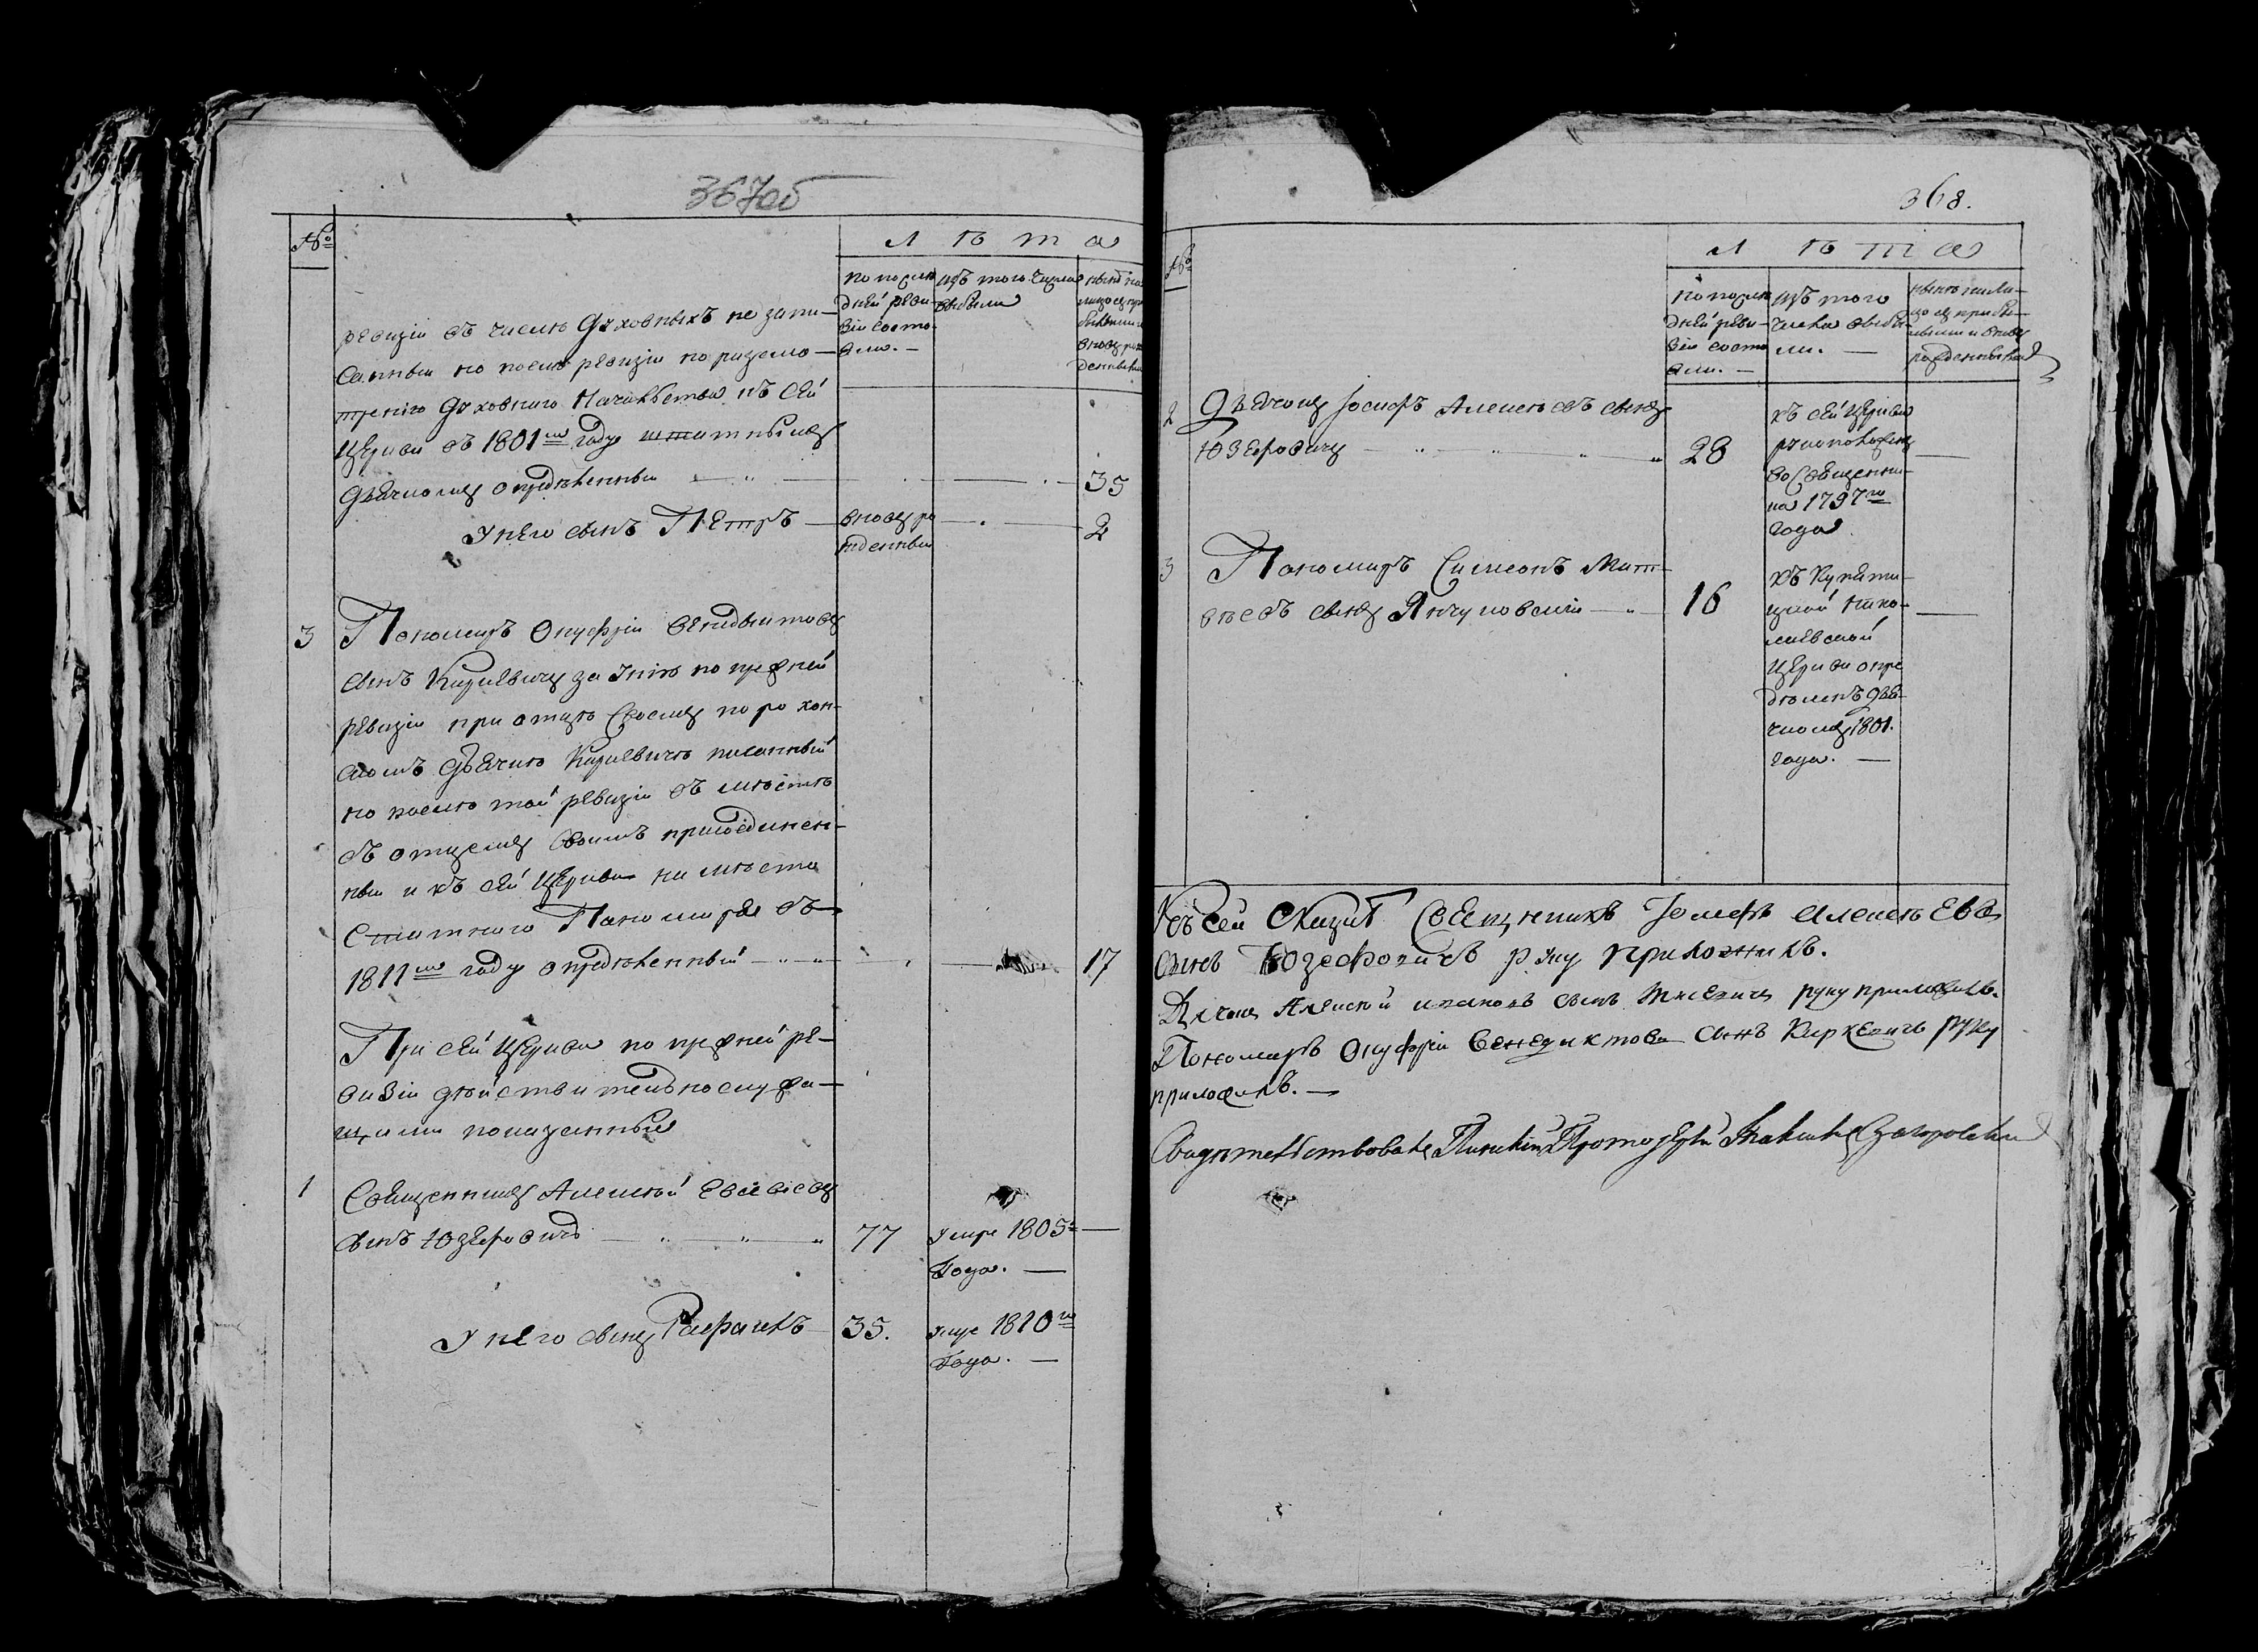 367об
№
Лѣта
по послѣ
дней реви
зіи состо
яло. —
изъ того числа
выбыли
ревизіи въ числѣ духовныхъ не запи—
санный но послѣ ревизіи по разсмо—
тренію духовнаго Начальства къ сей
церкви въ 1801мъ году штатнымъ
дьячкомъ опредѣленный — 35
У него сынъ Петръ — вновь ро 2
жденный
3 Пономарь Онуфрій Венедиктовъ
сынъ Киркевичъ
ревизіи при отцѣ своемъ
дьячкѣ Киркевичѣ писанный
но послѣ той ревизіи въ мѣстѣ
съ отцемъ своимъ присоединен—
ный и къ сей церкви на мѣсто
штатнаго Пономаря въ
1811мъ году опредѣленный — 17
При сей церкви по прежней ре—
визіи дѣйствительно служа—
щими показанные
1 Священникъ Алексѣй Евсѣевъ
сынъ Юзефовичъ — 77 умре 1805го
Года. —
У него сынъ Рафаилъ 35. умре 1810го
Года. —
368.
№
Лѣта
по послѣ
дней реви—
зіи состо
яло. —
изъ того
числа выбы
ли. —
нынѣ на ли—
цо съ прибы—
лыми и вновь
рожденными
2 Дьячокъ Іосифъ Алексѣевъ сынъ
Юзефовичъ — 28
къ сей церкви
рукоположенъ
во священни—
ка 1797го
года.
3 Пономарь Симеонъ Мат—
вѣевъ сынъ Янчуковскій — 16
къ Купяти—
цкой Нико—
лаевской
церкви опре
дѣленъ дья—
чкомъ 1801.
года. —
Къ сей сказкѣ Священникъ Іосифъ Алексѣевъ
сынъ Юзефовичъ руку приложилъ.
Дьячокъ Алексѣй сынъ руку приложилъ.
Пономарь Онуфрій Венедиктовъ сынъ Киркевичъ руку
приложилъ. —
Свидѣтельствовалъ Пинскій Протоіерей